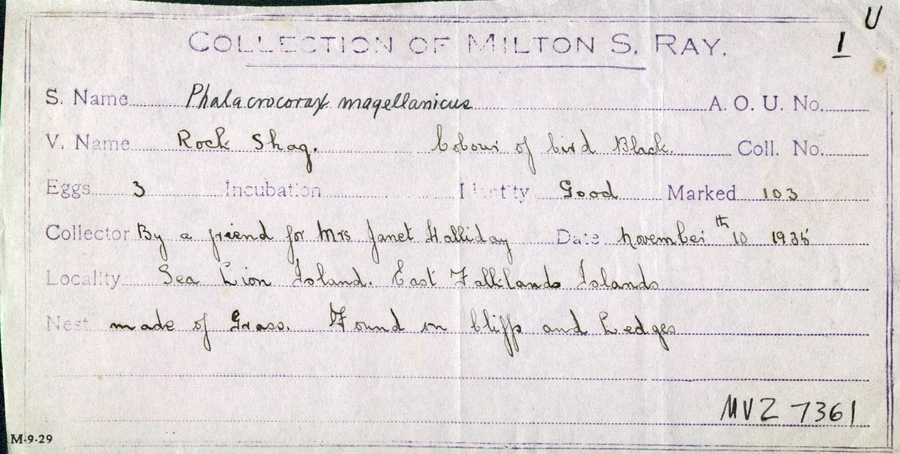 U
1
COLLECTION OF MILTON S. RAY.
S. Name Phalacrocorax magellanicus A. O. U. No.
V. Name Rock Shag. Colour of bird Black. Coll. No.
Eggs 3 Incubation Identity Good Marked 103
Collector By a friend for Mrs Janet Halliday Date November 10th 1935
Locality Sea Lion Island. East Falkland Islands
Nest made of Grass. Found on Cliffs and Ledges
MVZ 7361
M-9-29